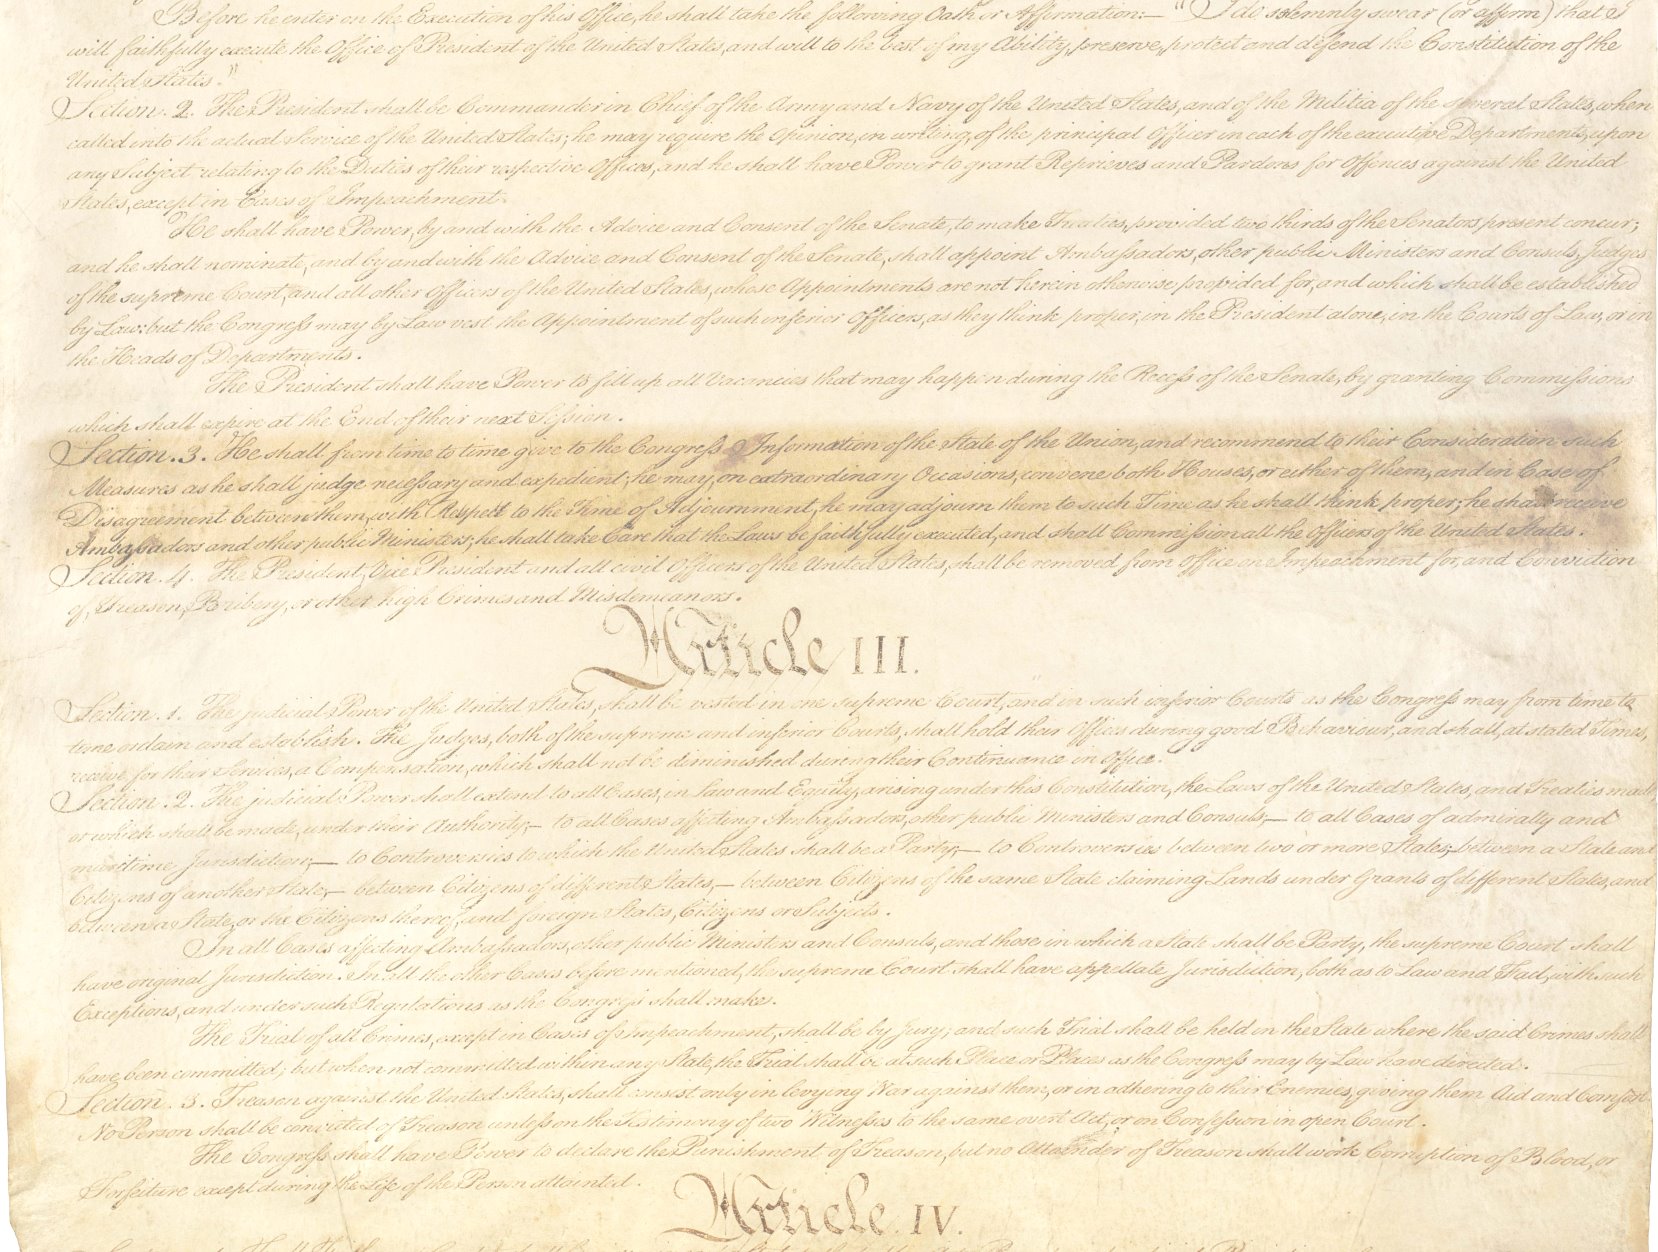 Before he enter on the Execution of his Office, he shall take the following Oath or Affirmation:— "I do solemnly swear (or affirm) that I
will faithfully execute the Office of President of the United States, and will to the best of my Ability, preserve, protect and defend the Constitution of the
United States."
Section. 2. The President shall be Commander in Chief of the Army and Navy of the United States, and of the Militia of the several States, when
called into the actual Service of the United States; he may require the Opinion, in writing, of the principal Officer in each of the executive Departments, upon
any Subject relating to the Duties of their respective Offices, and he shall have Power to grant Reprieves and Pardons for Offences against the United
States, except in Cases of Impeachment.
He shall have Power, by and with the Advice and Consent of the Senate, to make Treaties, provided two thirds of the Senators present concur;
and he shall nominate, and by and with the Advice and Consent of the Senate, shall appoint Ambassadors, other public Ministers and Consuls, Judges
of the supreme Court, and all other Officers of the United States, whose Appointments are not herein otherwise provided for, and which shall be established
by Law: but the Congress may by Law vest the Appointment of such inferior Officers, as they think proper, in the President alone, in the Courts of Law, or in
the Heads of Departments.
The President shall have Power to fill up all Vacancies that may happen during the Recess of the Senate, by granting Commissions
which shall expire at the End of their next Session.
Section. 3. He shall from time to time give to the Congress Information of the State of the Union, and recommend to their Consideration such
Measures as he shall judge necessary and expedient; he may, on extraordinary Occasions, convene both Houses, or either of them, and in Case of
Disagreement between them, with Respect to the Time of Adjournment, he may adjourn them to such Time as he shall think proper; he shall receive
Ambassadors and other public Ministers; he shall take Care that the Laws be faithfully executed, and shall Commission all the Officers of the United States.
Section. 4. The President, Vice President and all civil Officers of the United States, shall be removed from Office on Impeachment for, and Conviction
of, Treason, Bribery, or other high Crimes and Misdemeanors.
Article III.
Section. 1. The judicial Power of the United States, shall be vested in one supreme Court, and in such inferior Courts as the Congress may from time to
time ordain and establish. The Judges, both of the supreme and inferior Courts, shall hold their Offices during good Behaviour, and shall, at stated Times,
receive for their Services, a Compensation, which shall not be diminished during their Continuance in Office.
Section. 2. The judicial Power shall extend to all Cases, in Law and Equity, arising under this Constitution, the Laws of the United States, and Treaties made,
or which shall be made, under their Authority;— to all Cases affecting Ambassadors, other public Ministers and Consuls;— to all Cases of admiralty and
maritime Jurisdiction;— to Controversies to which the United States shall be a Party;— to Controversies between two or more States;— between a State and
Citizens of another State,— between Citizens of different States,— between Citizens of the same State claiming Lands under Grants of different States, and
between a State, or the Citizens thereof, and foreign States, Citizens or Subjects.
In all Cases affecting Ambassadors, other public Ministers and Consuls, and those in which a State shall be Party, the supreme Court shall
have original Jurisdiction. In all the other Cases before mentioned, the supreme Court shall have appellate Jurisdiction, both as to Law and Fact, with such
Exceptions, and under such Regulations as the Congress shall make.
The Trial of all Crimes, except in Cases of Impeachment, shall be by Jury; and such Trial shall be held in the State where the said Crimes shall
have been committed; but when not committed within any State, the Trial shall be at such Place or Places as the Congress may by Law have directed.
Section. 3. Treason against the United States, shall consist only in levying War against them, or in adhering to their Enemies, giving them Aid and Comfort.
No Person shall be convicted of Treason unless on the Testimony of two Witnesses to the same overt Act, or on Confession in open Court.
The Congress shall have Power to declare the Punishment of Treason, but no Attainder of Treason shall work Corruption of Blood, or
Forfeiture except during the Life of the Person attainted.
Article. IV.